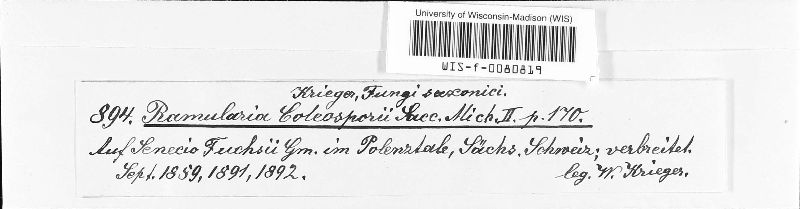 University of Wisconsin-Madison (WIS)
WIS-f-0080819
Krieger, Fungi saxonici.
894. Ramularia Coleosporii Sacc. Mich. II. p. 170.
Auf Senecio Fuchsii Gm. im Polenztale, Sächs. Schweiz; verbreitet.
Sept. 1889, 1891, 1892. leg. W. Krieger.